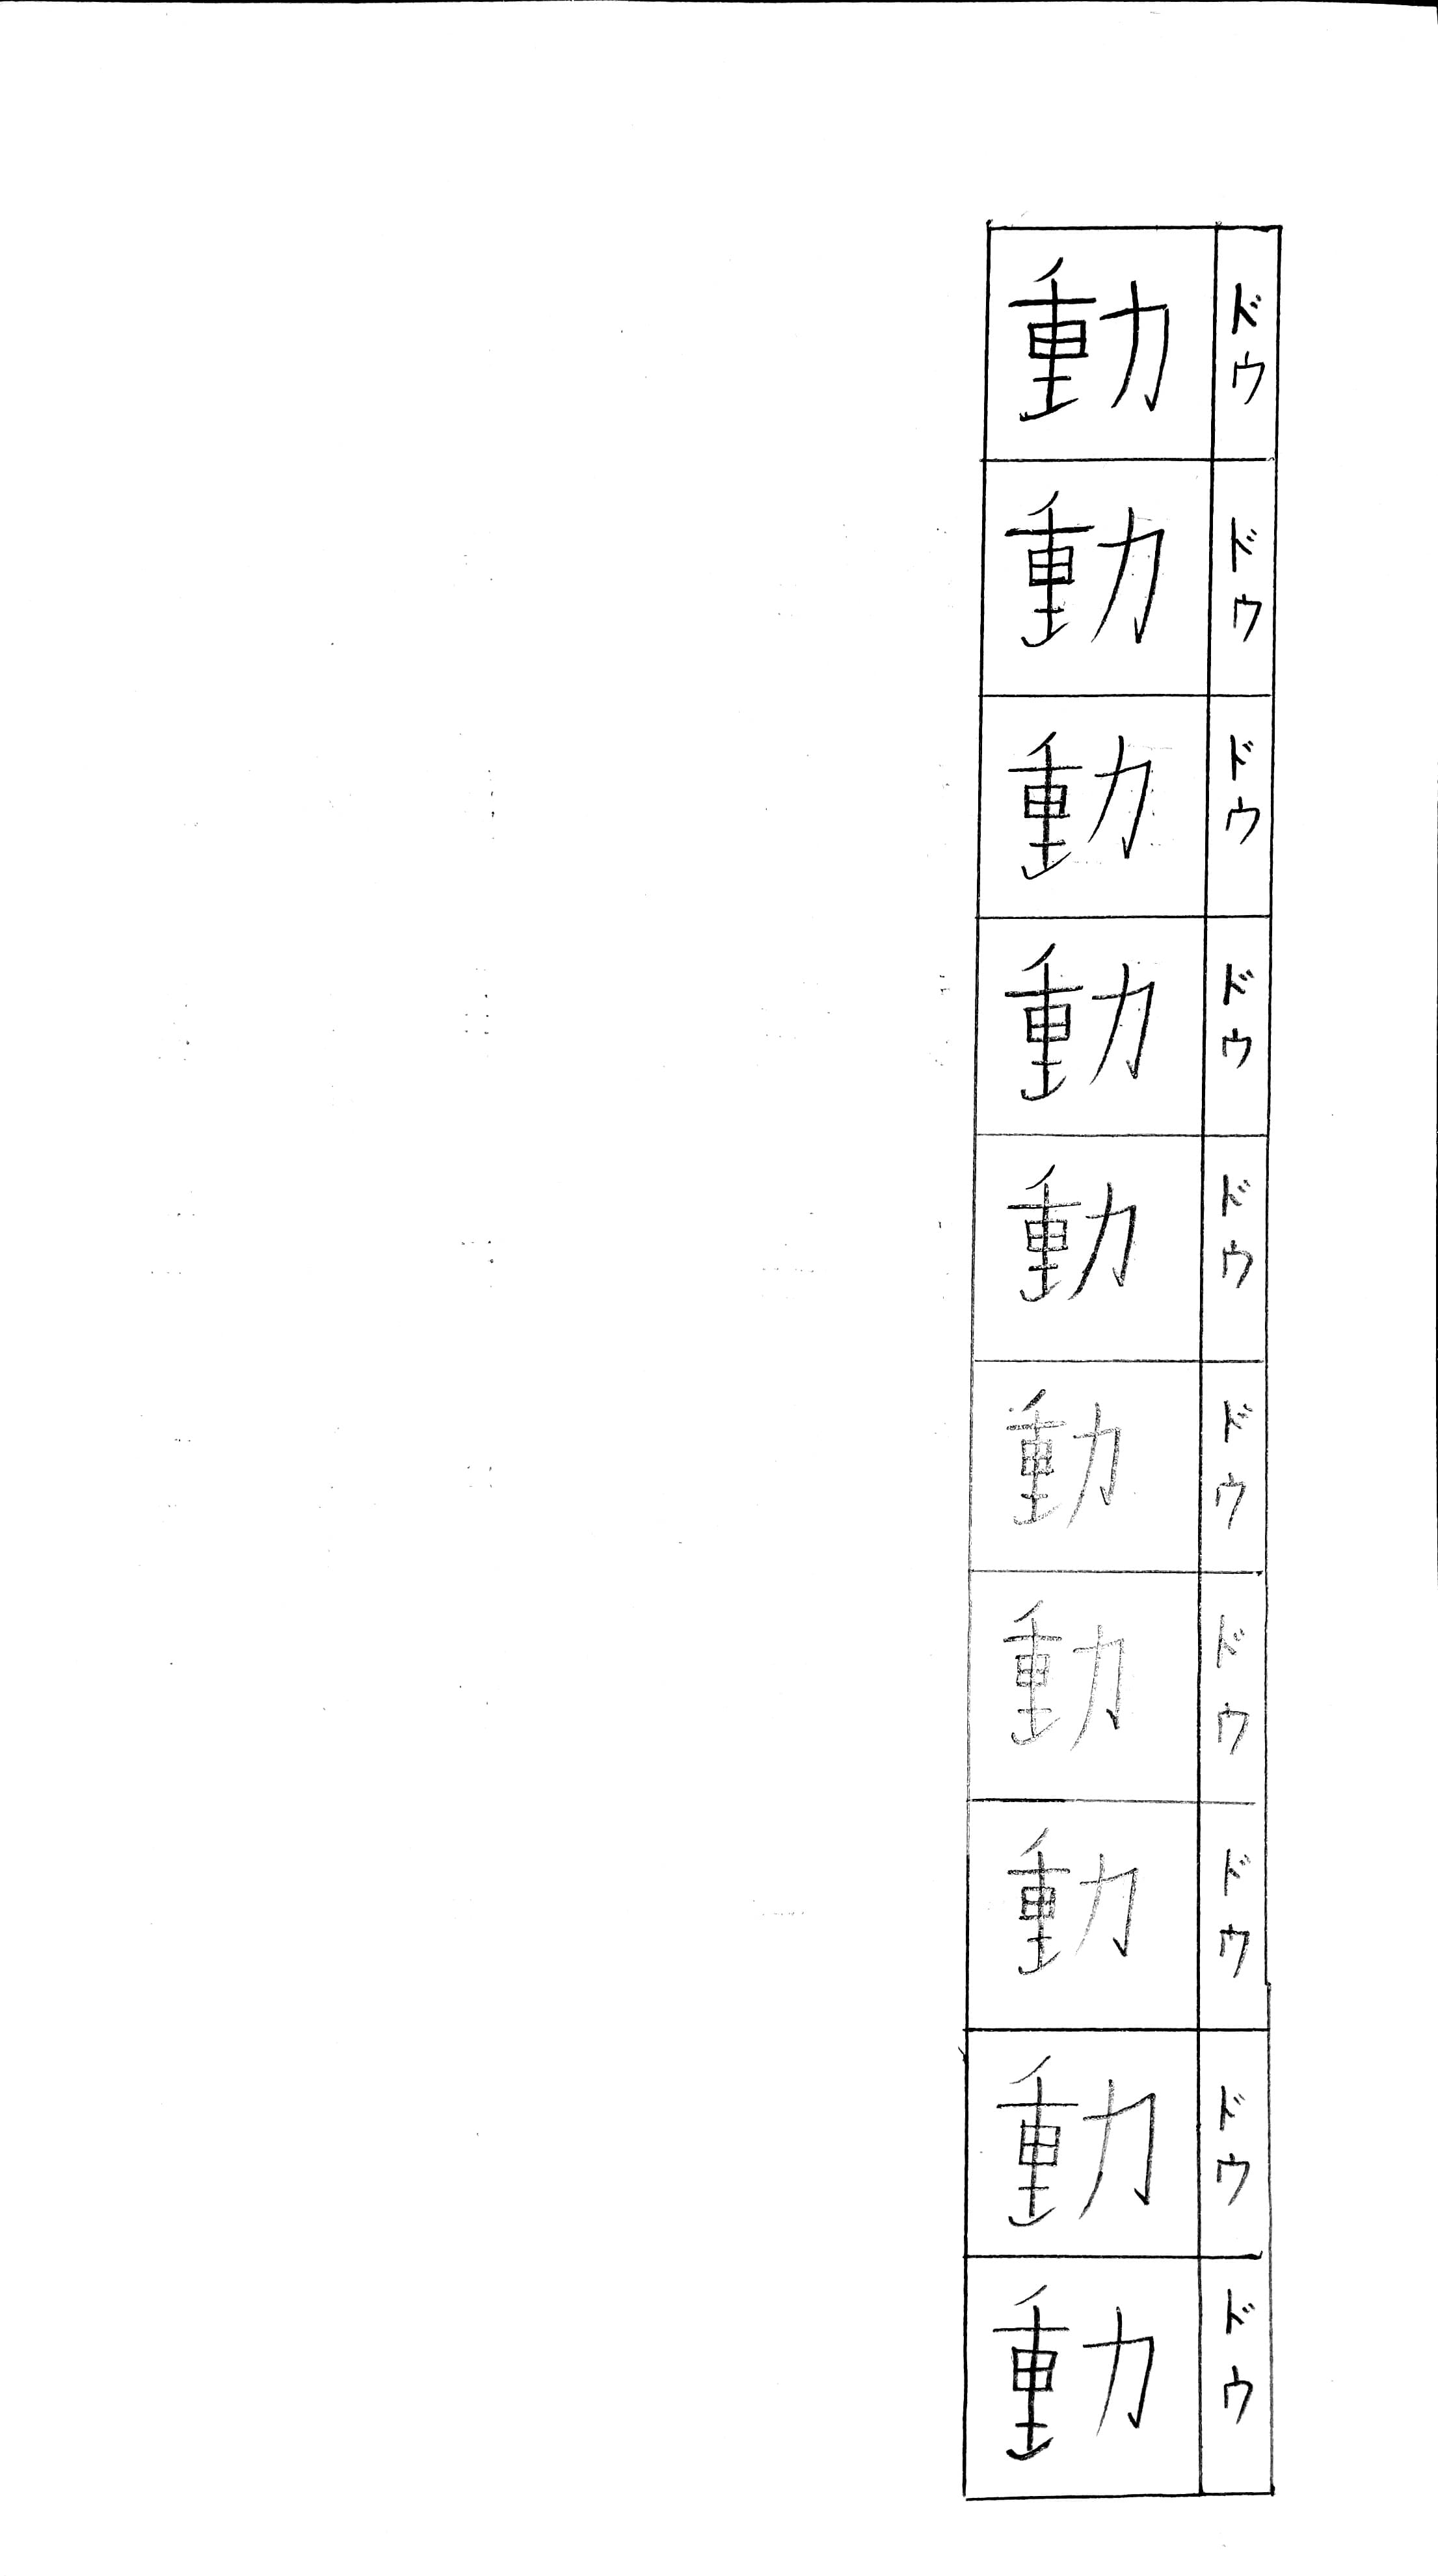 動 ドウ
動 ドウ
動 ドウ
動 ドウ
動 ドウ
動 ドウ
動 ドウ
動 ドウ
動 ドウ
動 ドウ